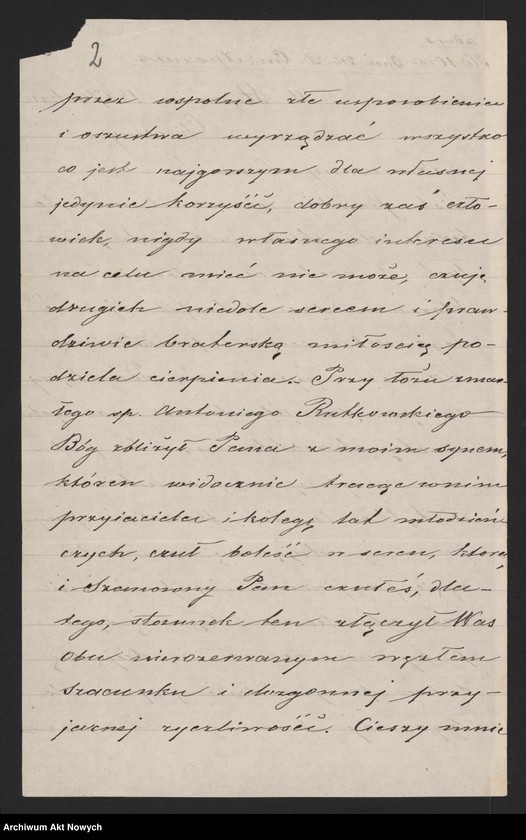 2
przez wspólne złe usposobienie
i oszustwa wyrządzać wszystko
co jest najgorszym dla własnej
jedynie korzyści, dobry zaś czło-
wiek, nigdy własnego interesu
na celu mieć nie może, czuje
drugich niedole sercem i praw-
dziwie braterską miłością po-
dziela cierpienia. Przy łożu zmar-
łego sp. Antoniego Rutkowskiego
Bóg zbliżył Pana z moim synem,
któren widocznie tracąc w nim
przyjaciela i kolegę lat młodzień-
czych, czuł boleść w sercu, którą
i Szanowny Pan czułeś, dla-
tego, stosunek ten złączył Was
Obu nierozerwanym węzłem
szacunku i dozgonnej przy-
jaznej życzliwości. Cieszy mnie
Archiwum Akt Nowych